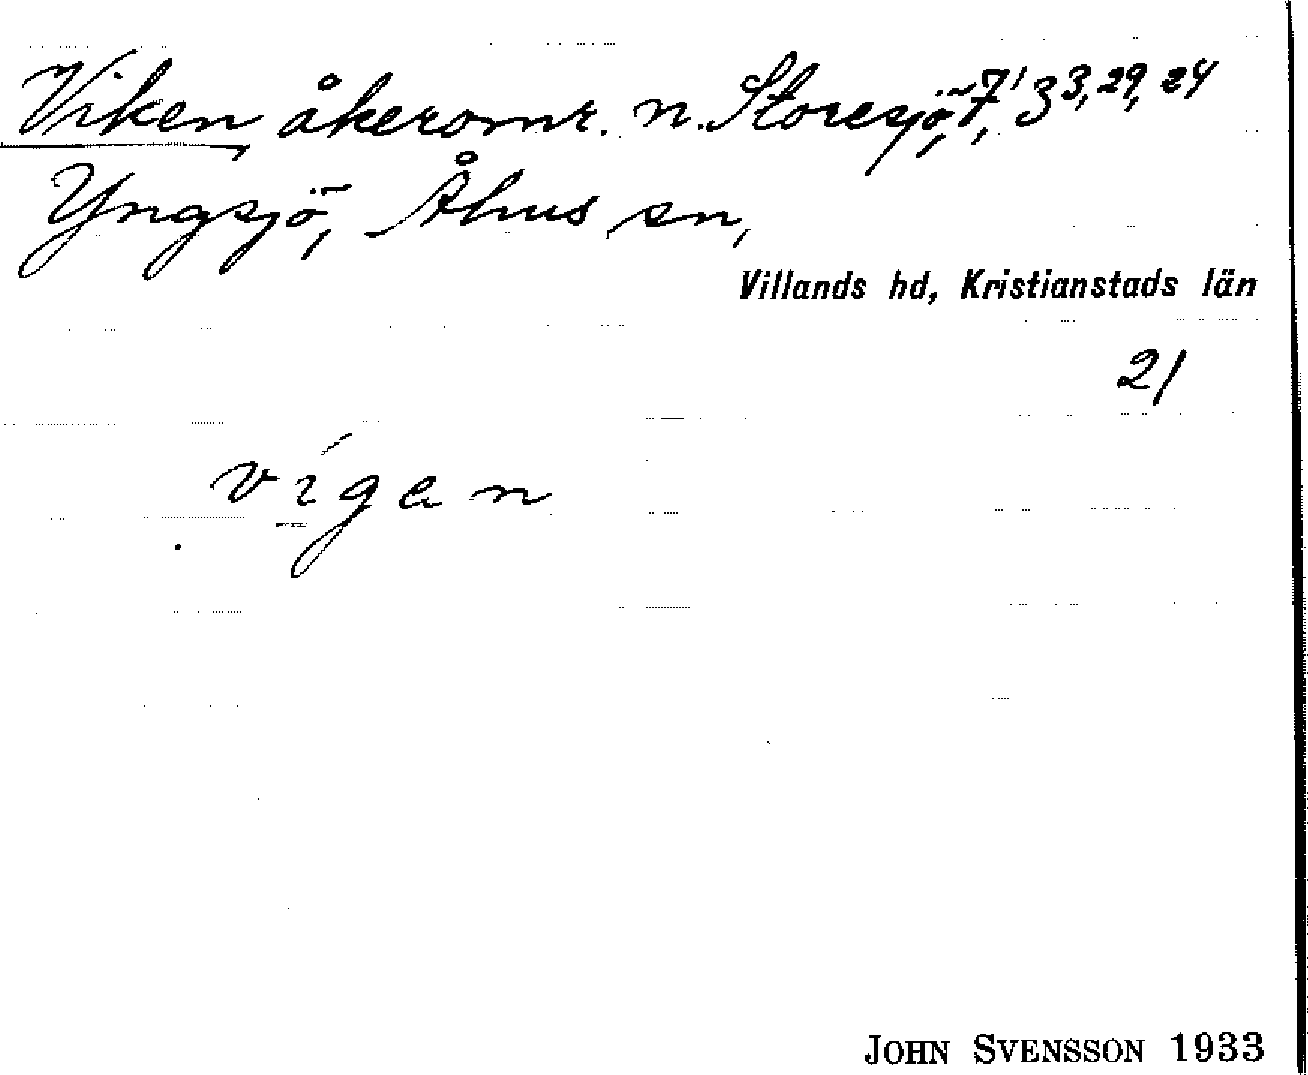 Viken, åkeromr. n. Storesjö, 7, 33, 29, 24
Yngsjö, Åhus sn,
Villands hd, Kristianstads län
21
vígan
JOHN SVENSSON 1933